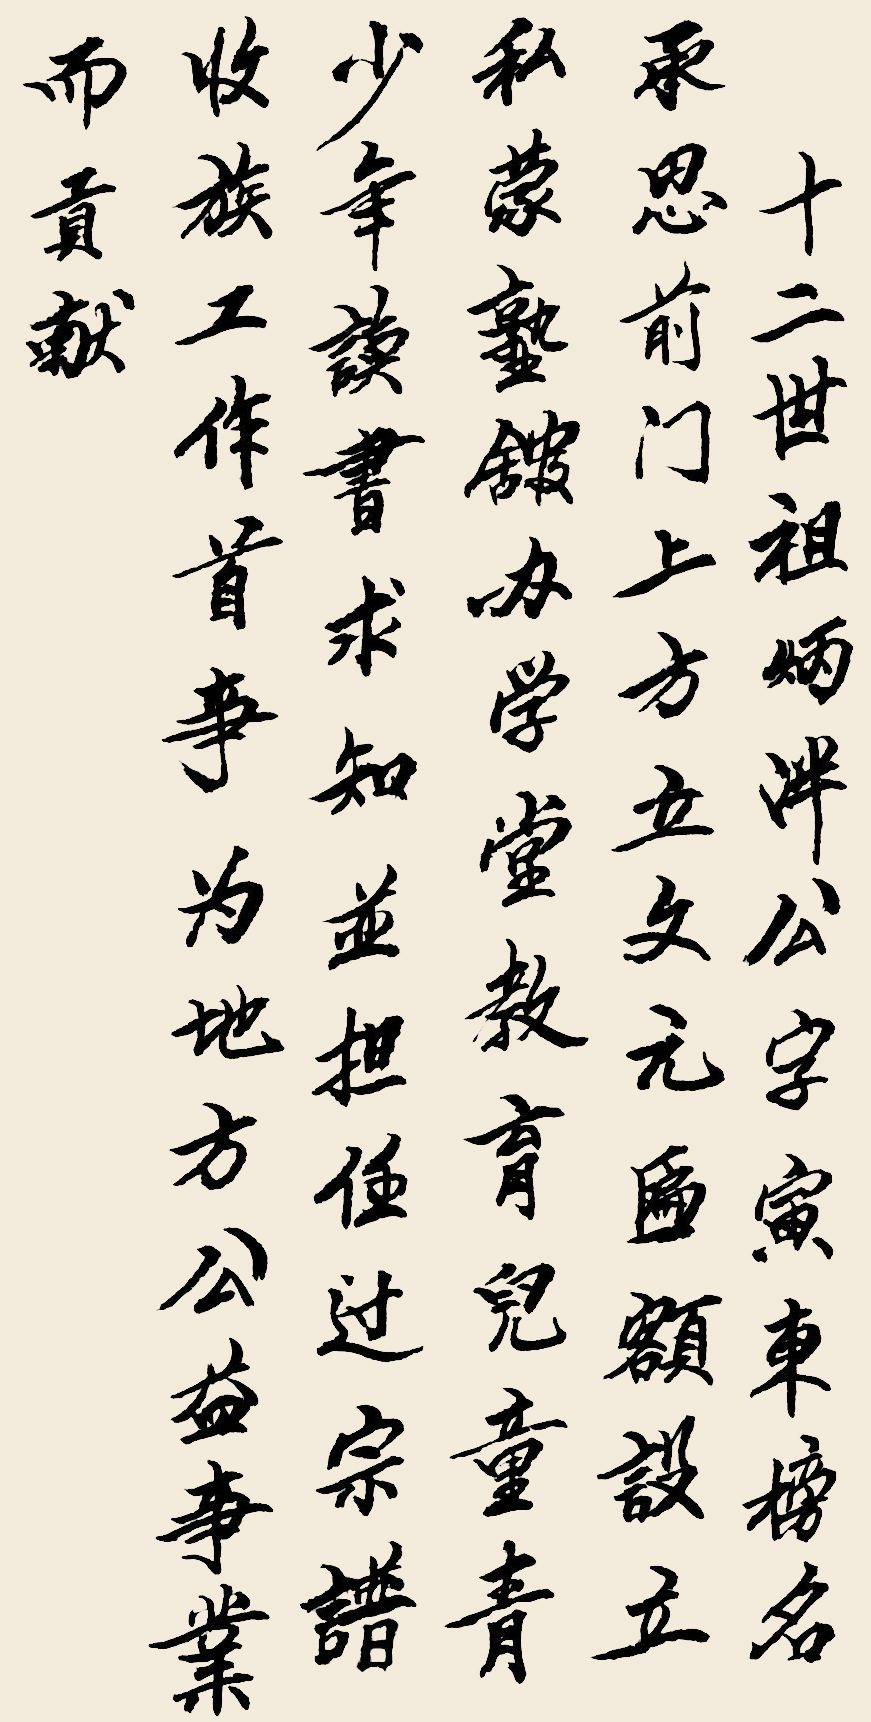 十二世祖炳泮公字寅東榜名
承恩前门上方立文元匾額設立
私蒙塾馆办学堂教育兒童青
少年讀書求知並担任过宗譜
收族工作首事为地方公益事業
而貢献